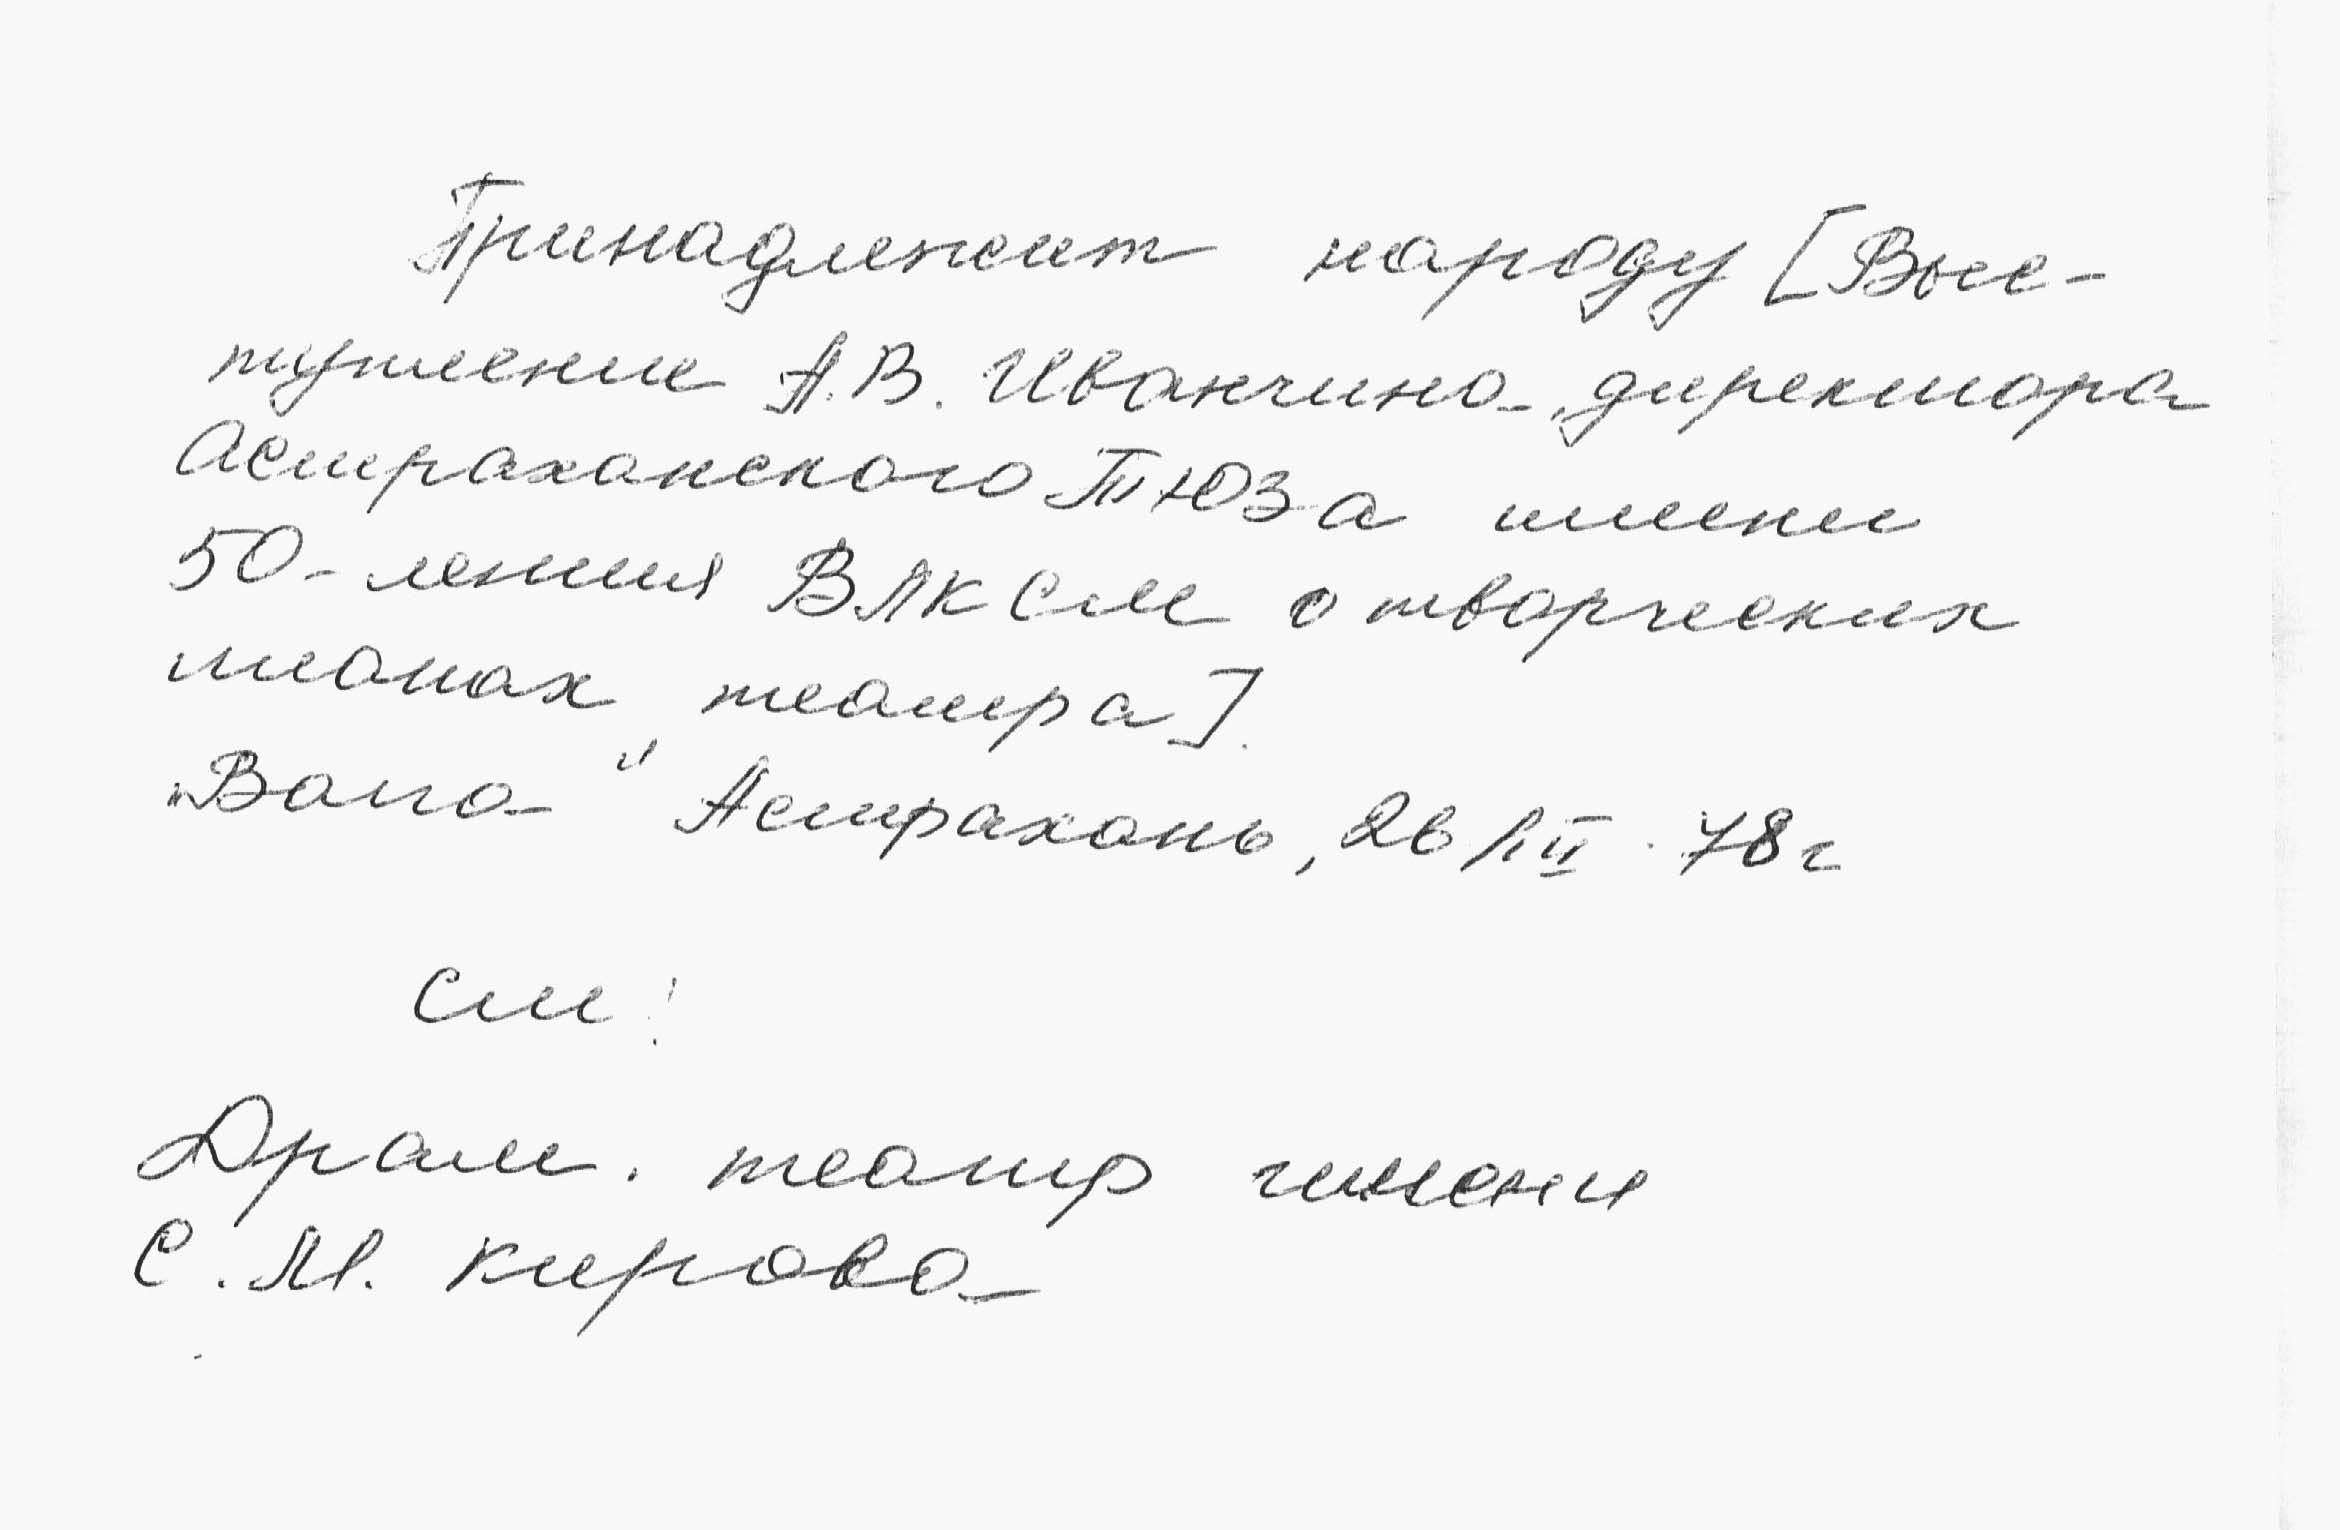 Принадлежит народу [Выс-
тупление А.В. Иванчина, директора
Астраханского ТЮЗа имени
50-летия ВЛКСМ о творческих
планах театра].
„Волга" Астрахань, 26/III. 78 г
См:
Драм. театр имени
С.М. Кирова